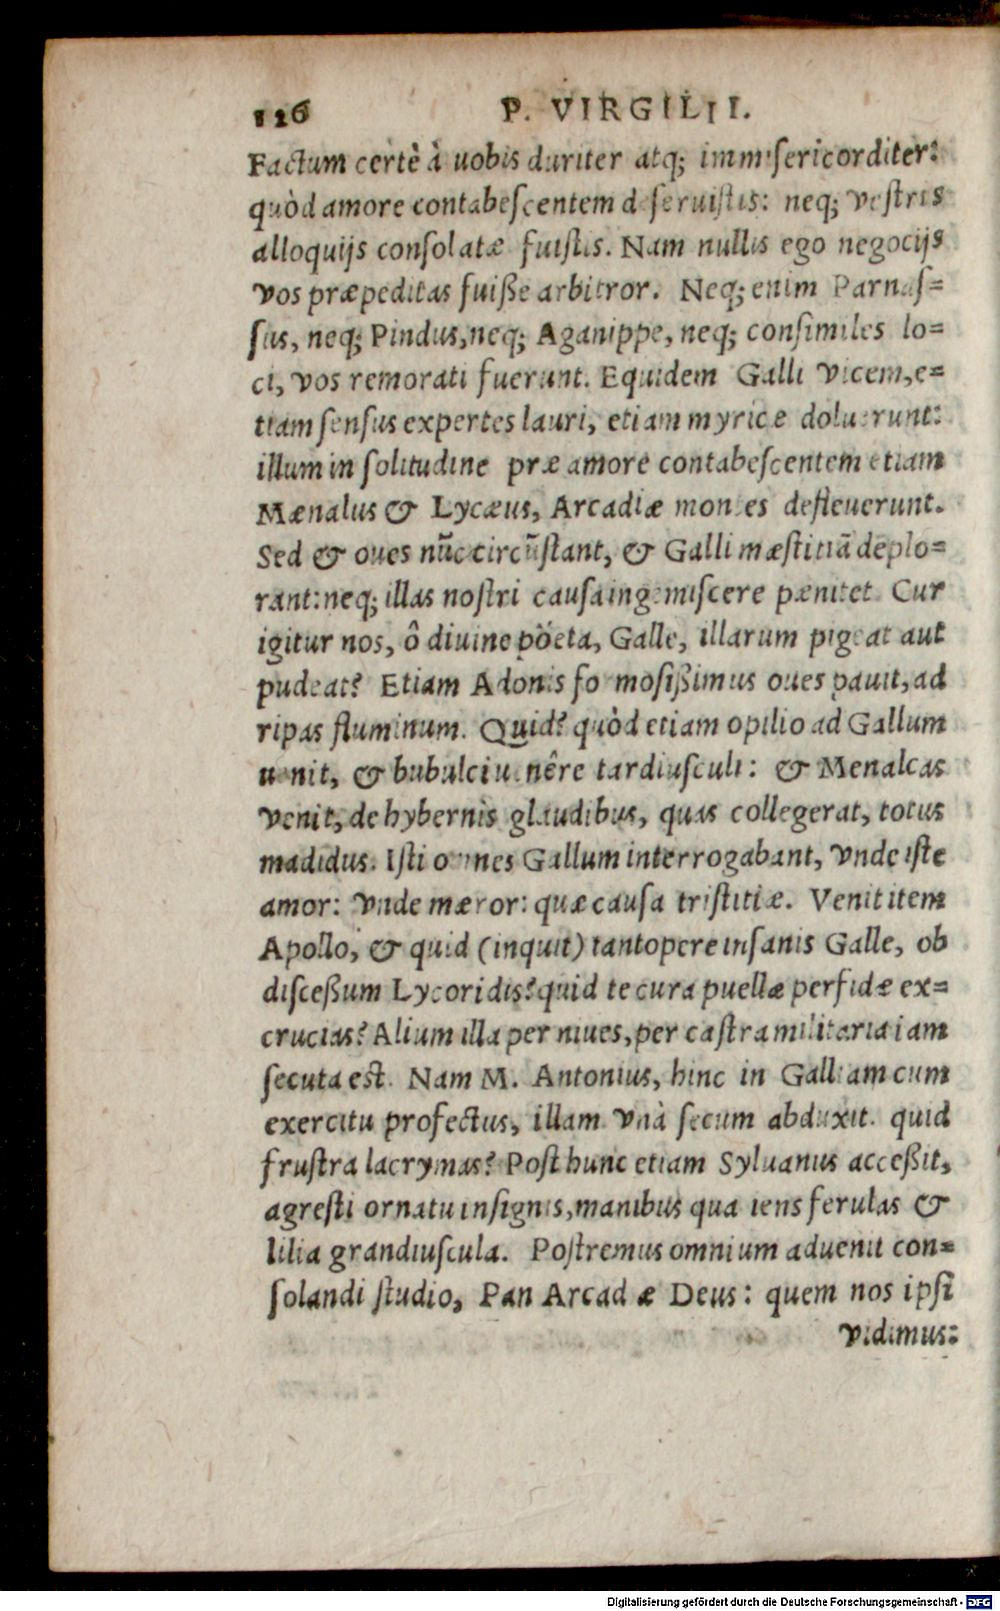 126 P. VIRGILII.
Factum certè à uobis duriter atq; immisericorditer:
quòd amore contabescentem deseruistis: neq; vestris
alloquijs consolatæ fuistis. Nam nullis ego negocijs
vos præpeditas fuiße arbitror. Neq; enim Parnas=
sus, neq; Pindus, neq; Aganippe, neq; consimiles lo=
ci, vos remorati fuerunt. Equidem Galli vicem, e=
tiam sensus expertes lauri, etiam myricæ doluerunt:
illum in solitudine præ amore contabescentem etiam
Mænalus & Lycæus, Arcadiæ montes defleuerunt.
Sed & oues nũc circũstant, & Galli mæstitiã deplo=
rant: neq; illas nostri causa ingemiscere pænitet. Cur
igitur nos, ô diuine pöeta, Galle, illarum pigeat aut
pudeat? Etiam Adonis formosißimus oues pauit, ad
ripas fluminum. Quid? quòd etiam opilio ad Gallum
uenit, & bubulci uenêre tardiusculi: & Menalcas
venit, de hybernis glaudibus, quas collegerat, totus
madidus. Isti omnes Gallum interrogabant, vnde iste
amor: vnde mæror: quæ causa tristitiæ. Venit item
Apollo, & quid (inquit) tantopere insanis Galle, ob
disceßum Lycoridis? quid te cura puellæ perfidæ ex=
crucias? Alium illa per niues, per castra militaria iam
secuta est. Nam M. Antonius, hinc in Galliam cum
exercitu profectus, illam vnà secum abduxit. quid
frustra lacrymas? Post hunc etiam Syluanus acceßit,
agresti ornatu insignis, manibus quatiens ferulas &
lilia grandiuscula. Postremus omnium aduenit con=
solandi studio, Pan Arcadiæ Deus: quem nos ipsi
vidimus:
Digitalisierung gefördert durch die Deutsche Forschungsgemeinschaft - DFG